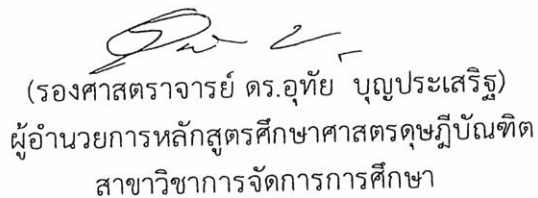 (รองศาสตราจารย์ ดร.อุทัย บุญประเสริฐ)
ผู้อำนวยการหลักสูตรศึกษาศาสตรดุษฎีบัณฑิต
สาขาวิชาการจัดการการศึกษา